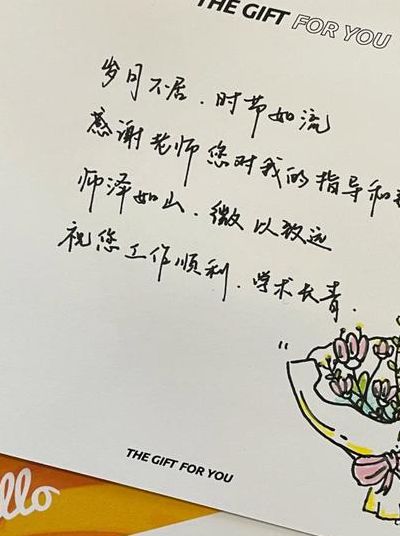 THE GIFT FOR YOU
岁月不居.时节如流
感谢老师您对我的指导和
师泽如山.微以致远
祝您工作顺利.学术长青.
THE GIFT FOR YOU